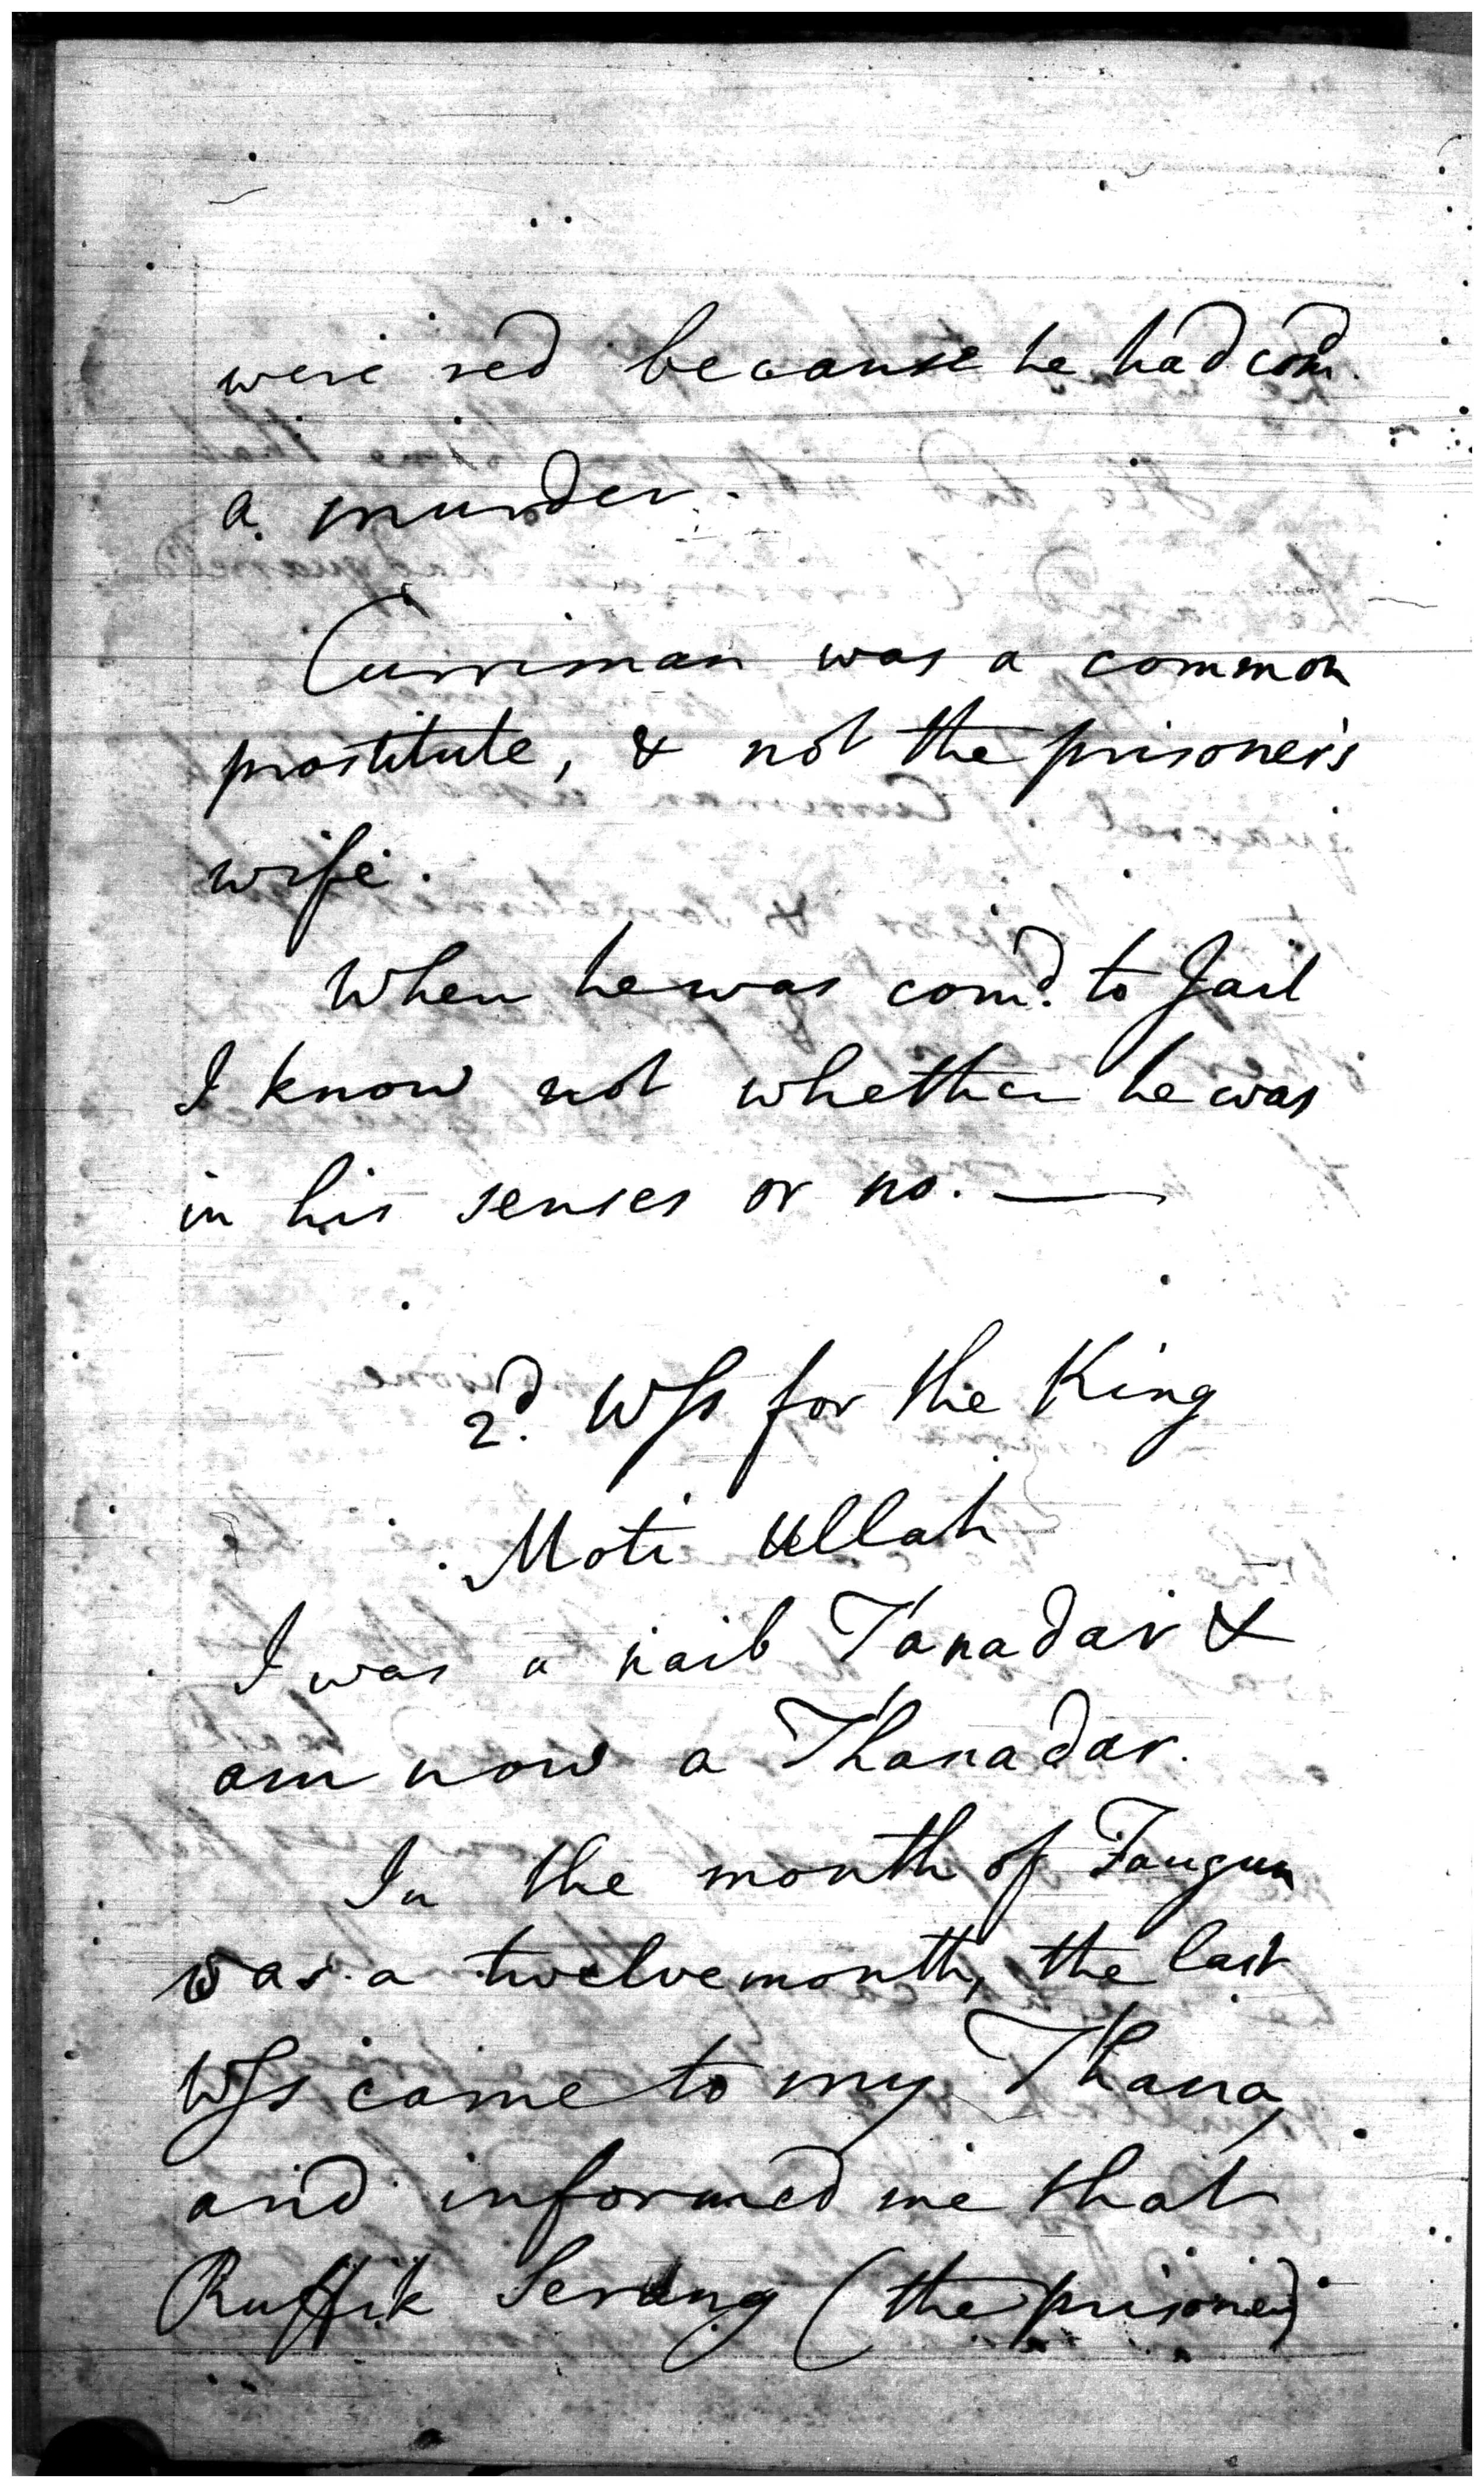 were red because he had com̄d.
a murder.
Curriman was a common
prostitute, & not the prisoner's
wife.
When he was com̄d. to Jail
I know not whether he was
in his senses or no. —
2d. Wſs for the King
Moti Ullah
I was a naib Tanadar &
am now a Thanadar.
In the month of Faugun
was a twelvemonth, the last
Wſs came to my Thana,
and informed me that
Ruffik Serang (the prisoner)